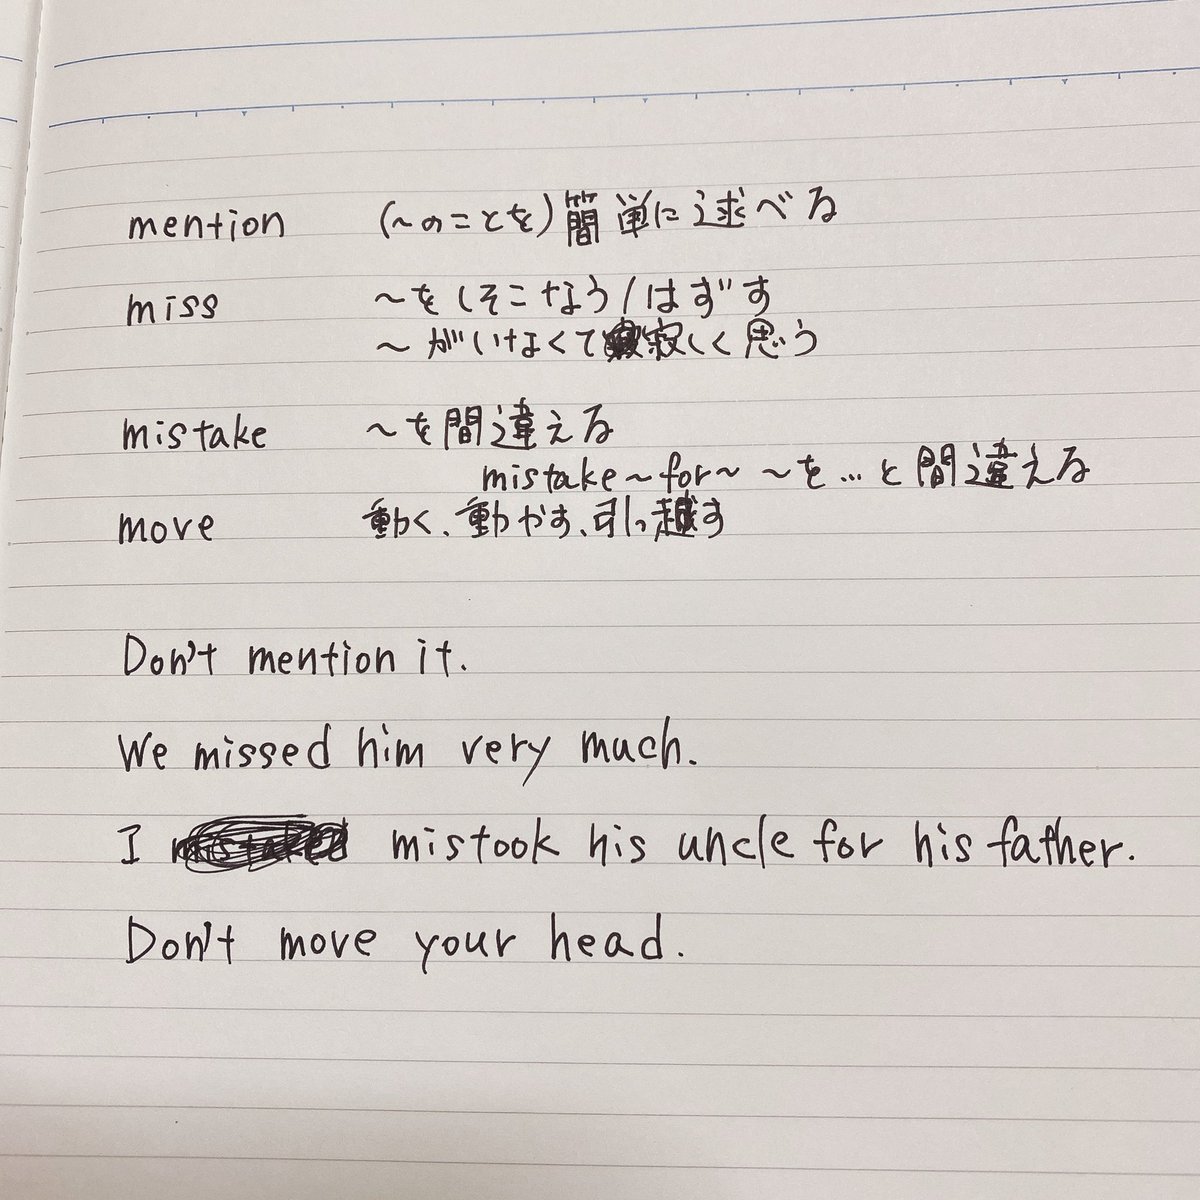 mention (～のことを)簡単に述べる
miss ～をしそこなう/はずす
～がいなくて寂しく思う
mistake ～を間違える
mistake～for～ ～を…と間違える
move 動く、動かす、引っ越す
Don't mention it.
We missed him very much.
I mistook his uncle for his father.
Don't move your head.